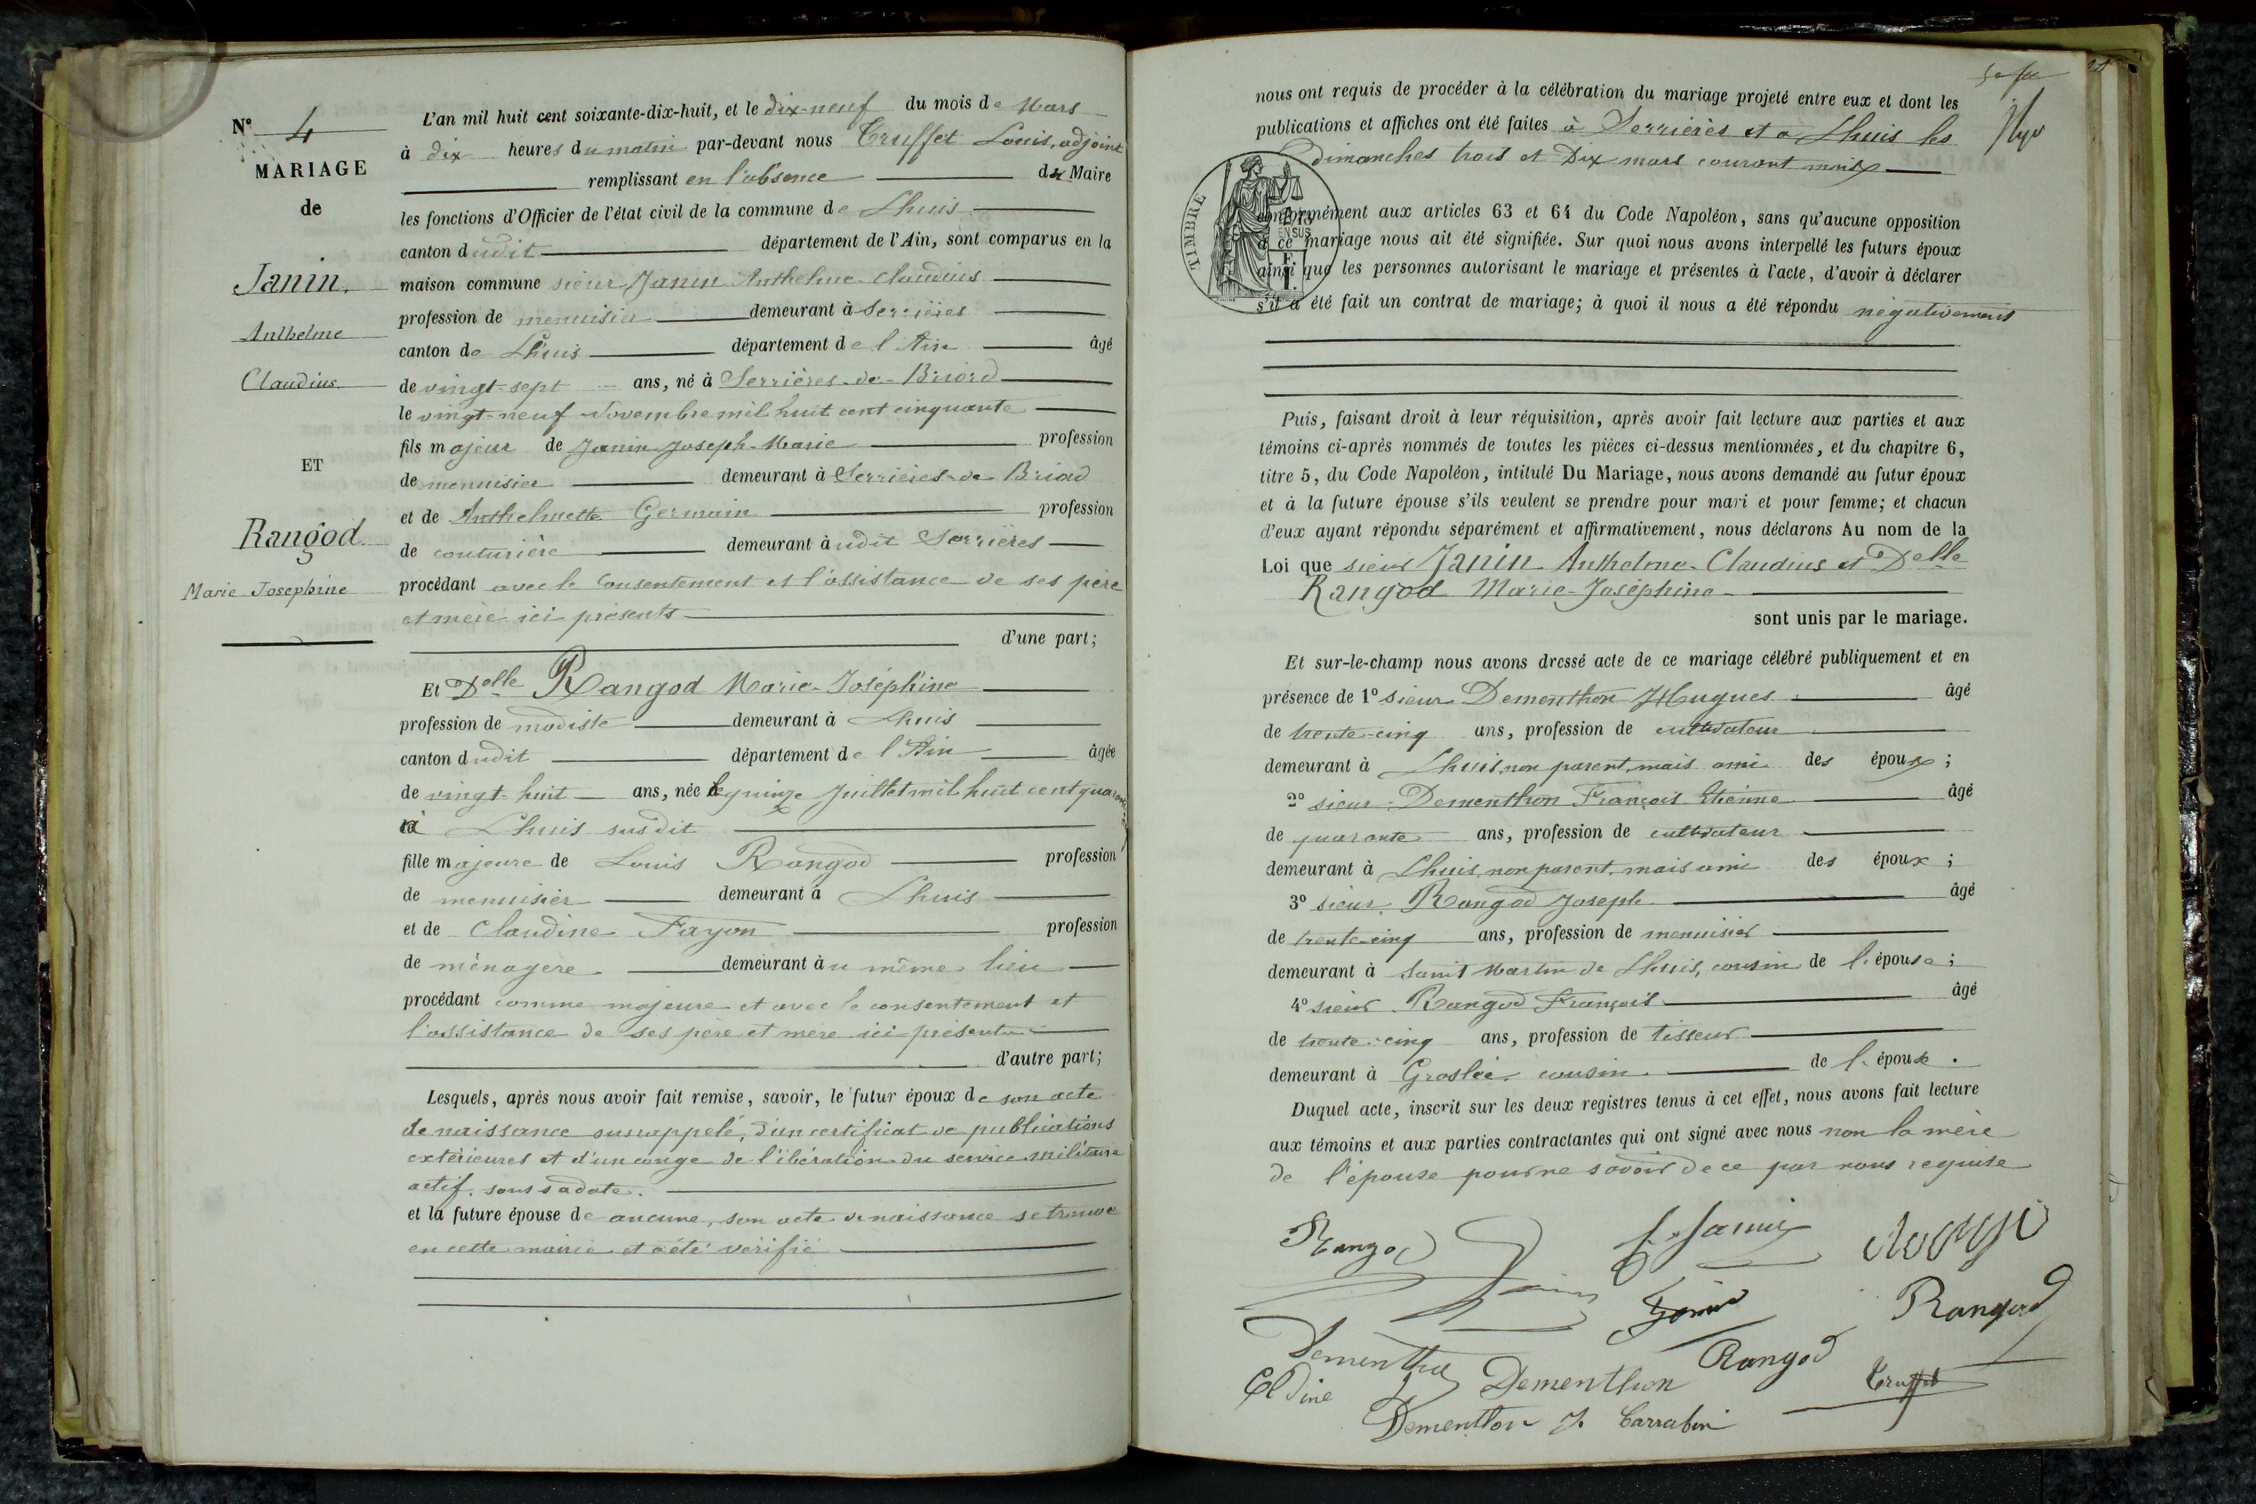 N° 4
MARIAGE
de
Janin.
Anthelme
Claudius
ET
Rangod
Marie Josephine
L'an mil huit cent soixante-dix-huit, et le dix-neuf du mois de Mars
à dix heures du matin par-devant nous Truffet Louis, adjoint
remplissant en l'absence du Maire
les fonctions d'Officier de l'état civil de la commune de Lhuis
canton dudit département de l'Ain, sont comparus en la
maison commune sieur Janin Anthelme Claudius
profession de menuisier demeurant à Serrières
canton de Lhuis département de l'Ain âgé
de vingt-sept ans, né à Serrières-de-Briord
le vingt-neuf Novembre mil huit cent cinquante
fils majeur de Janin Joseph-Marie profession
de menuisier demeurant à Serrières-de Briord
et de Anthelmette Germain profession
de couturière demeurant àudit Serrières
procédant avec le consentement et l'assistance de ses père
et mère ici présents
d'une part;
Et Delle Rangod Marie-Joséphine
profession de modiste demeurant à Lhuis
canton dudit département de l'Ain âgée
de vingt-huit ans, née le quinze Juillet mil huit cent quarante
à Lhuis susdit
fille majeure de Louis Rangod profession
de menuisier demeurant à Lhuis
et de Claudine Fayon profession
de ménagère demeurant àu même lieu
procédant comme majeure et avec le consentement et
l'assistance de ses père et mère ici présents
d'autre part;
Lesquels, après nous avoir fait remise, savoir, le futur époux de son acte
de naissance susrappelé, d'un certificat de publications
extérieures et d'un congé de libération du service militaire
actif, sous sa date.
et la future épouse de aucune, son acte de naissance se trouve
en cette mairie et a été vérifié
nous ont requis de procéder à la célébration du mariage projeté entre eux et dont les
publications et affiches ont été faites à Serrières et à Lhuis les
dimanches trois et Dix mars courant mois
TIMBRE
conformément aux articles 63 et 64 du Code Napoléon, sans qu'aucune opposition
à ce mariage nous ait été signifiée. Sur quoi nous avons interpellé les futurs époux
ainsi que les personnes autorisant le mariage et présentes à l'acte, d'avoir à déclarer
s'il a été fait un contrat de mariage; à quoi il nous a été répondu négativement
Puis, faisant droit à leur réquisition, après avoir fait lecture aux parties et aux
témoins ci-après nommés de toutes les pièces ci-dessus mentionnées, et du chapitre 6,
titre 5, du Code Napoléon, intitulé Du Mariage, nous avons demandé au futur époux
et à la future épouse s'ils veulent se prendre pour mari et pour femme; et chacun
d'eux ayant répondu séparément et affirmativement, nous déclarons Au nom de la
Loi que sieur Janin Anthelme-Claudius et Delle
Rangod Marie-Joséphine
sont unis par le mariage.
Et sur-le-champ nous avons dressé acte de ce mariage célébré publiquement et en
présence de 1° sieur Dementhon Hugues âgé
de trente-cinq ans, profession de cultivateur
demeurant à Lhuis, non parent, mais ami des époux;
2° sieur Dementhon François Etienne âgé
de quarante ans, profession de cultivateur
demeurant à Lhuis, non parent, mais ami des époux;
3° sieur Rangod Joseph âgé
de trente-cinq ans, profession de menuisier
demeurant à Saint Martin de Lhuis, cousin de l'épouse;
4° sieur Rangod François âgé
de trente-cinq ans, profession de tisseur
demeurant à Groslée cousin de l'épouse.
Duquel acte, inscrit sur les deux registres tenus à cet effet, nous avons fait lecture
aux témoins et aux parties contractantes qui ont signé avec nous non la mère
de l'épouse pour ne savoir de ce par nous requise
Rangod Janin
Rangod
Dementhon Rangod
Dementhon Truffet
Dementhon J. Carrabin